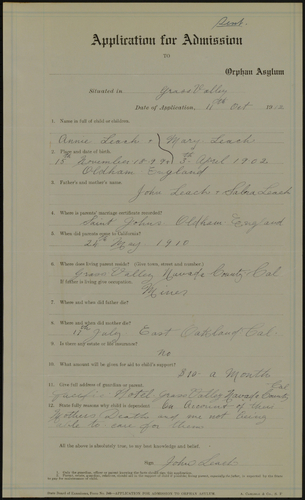 Book.
Application for Admission
TO
Orphan Asylum
Situated in Grass Valley
Date of Application, 11th Oct 1910
1. Name in full of child or children.
Annie Leach & Mary Leach
2. Place and date of birth.
15th November 1899 & 3rd April 1902
Oldham England
3. Father's and mother's name.
John Leach & Selina Leach
4. Where is parents' marriage certificate recorded?
Saint Johns Oldham England
5. When did parents come to California?
26th May 1910
6. Where does living parent reside? (Give town, street and number.)
Grass Valley Nevada County Cal
If father is living give occupation.
Miner
7. Where and when did father die?
8. Where and when did mother die?
July East Oakland Cal
9. Is there any estate or life insurance?
No
10. What amount will be given for aid to child's support?
$20 a Month
11. Give full address of guardian or parent.
Hotel Grass Valley Nevada County Cal
12. State fully reasons why child is dependent. On Account of their
Mothers Death and me not being
able to care for them
All the above is absolutely true, to my best knowledge and belief.
Sign. John Leach